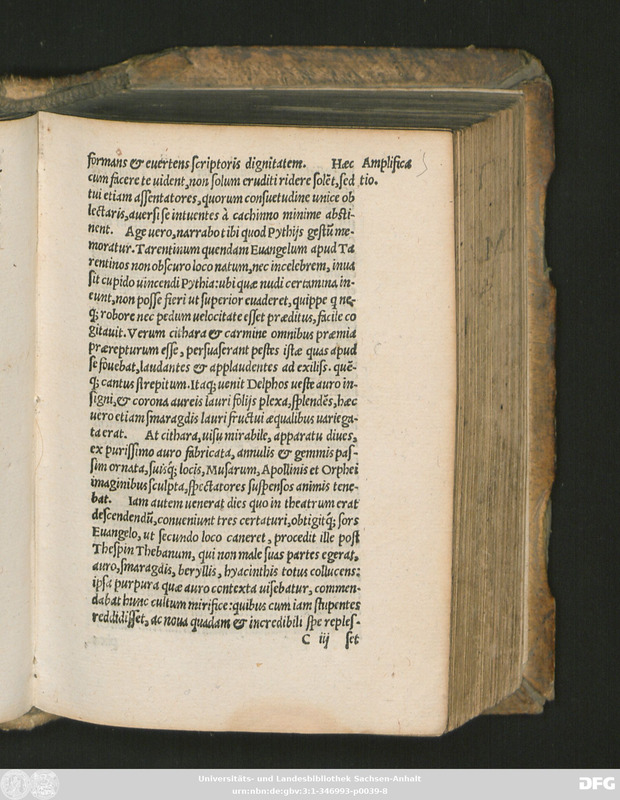 formans & evertens scriptoris dignitatem. Hæc
Amplifica
cum facere te vident, non solum eruditi ridere solēt, sed
tio.
tui etiam assentatores, quorum consuetudine unice ob
lectaris, aversi se intuentes à cachinno minime absti-
nent. Age vero, narrabo tibi quod Pythijs gestū me-
moratur. Tarentinum quendam Euangelum apud Ta
rentinos non obscuro loco natum, nec incelebrem, inua
sit cupido uincendi Pythia: ubi quæ nudi certamina in-
eunt, non posse fieri ut superior euaderet, quippe q ne-
q; robore nec pedum uelocitate esset præditus, facile co
gitauit. Verum cithara & carmine omnibus præmia
prærepturum esse, persuaserant pestes istæ quas apud
se fouebat, laudantes & applaudentes ad exiliss. quē-
q; cantus strepitum. Itaq; uenit Delphos ueste auro in-
signi, & corona aureis lauri folijs plexa, splendēs, hæc
uero etiam smaragdis lauri fructui æqualibus uariega-
ta erat. At cithara, uisu mirabile, apparatu diues,
ex purissimo auro fabricata, annulis & gemmis pas-
sim ornata, suisq; locis, Musarum, Apollinis et Orphei
imaginibus sculpta, spectatores suspensos animis tene-
bat. Iam autem uenerat dies quo in theatrum erat
descendendū, conueniunt tres certaturi, obtigitq; sors
Euangelo, ut secundo loco caneret, procedit ille post
Thespin Thebanum, qui non male suas partes egerat,
auro, smaragdis, beryllis, hyacinthis totus collucens:
ipsa purpura quæ auro contexta uisebatur, commen-
dabat hunc cultum mirifice: quibus cum iam stupentes
reddidisset, ac noua quadam & incredibili spe reples-
C iij set
Universitäts- und Landesbibliothek Sachsen-Anhalt
urn:nbn:de:gbv:3:1-346993-p0039-8
DFG